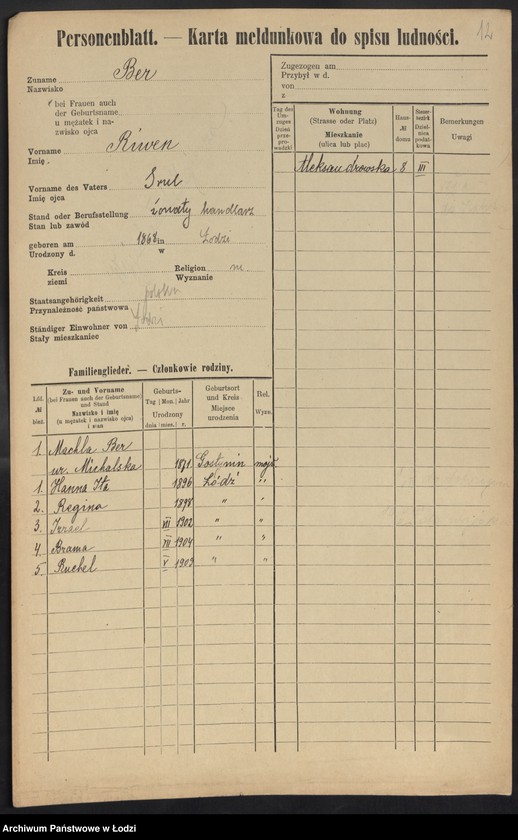 12
Personenblatt. — Karta meldunkowa do spisu ludności.
Zuname Ber
Nazwisko
bei Frauen auch
der Geburtsname
u mężatek i na-
zwisko ojca
Vorname Riwen
Imię
Vorname des Vaters Srul
Imię ojca
Stand oder Berufsstellung żonaty handlarz
Stan lub zawód
geboren am 1868 in Łodzi
Urodzony d. w
Kreis Religion m.
ziemi Wyznanie
Staatsangehörigkeit polska
Przynależność państwowa
Ständiger Einwohner von Łodzi
Stały mieszkaniec
Zugezogen am
Przybył w d.
von
z
Tag des Um-zuges Dzień prze-prowadzki
Wohnung
(Strasse oder Platz)
Mieszkanie
(ulica lub plac)
Haus- № domu
Steuer-bezirk Dzielnica podatkowa
Bemerkungen
Uwagi
Aleksandrowska 8 III
Familienglieder. — Członkowie rodziny.
Lfd. № bież.
Zu- und Vorname
(bei Frauen auch der Geburtsname)
und Stand
Nazwisko i imię
(u mężatek i nazwisko ojca)
i stan
Geburts-
Tag Mon. Jahr
Urodzony
dnia mies. r.
Geburtsort
und Kreis
Miejsce
urodzenia
Rel.
Wyzn.
1. Machla Ber
ur. Michalska 1871 Gostynin mojż.
1. Hanna Ita 1896 Łódź "
2. Regina 1898 " "
3. Izrael VII 1902 " "
4. Brama VII 1904 " "
5. Ruchel V 1909 " "
Archiwum Państwowe w Łodzi